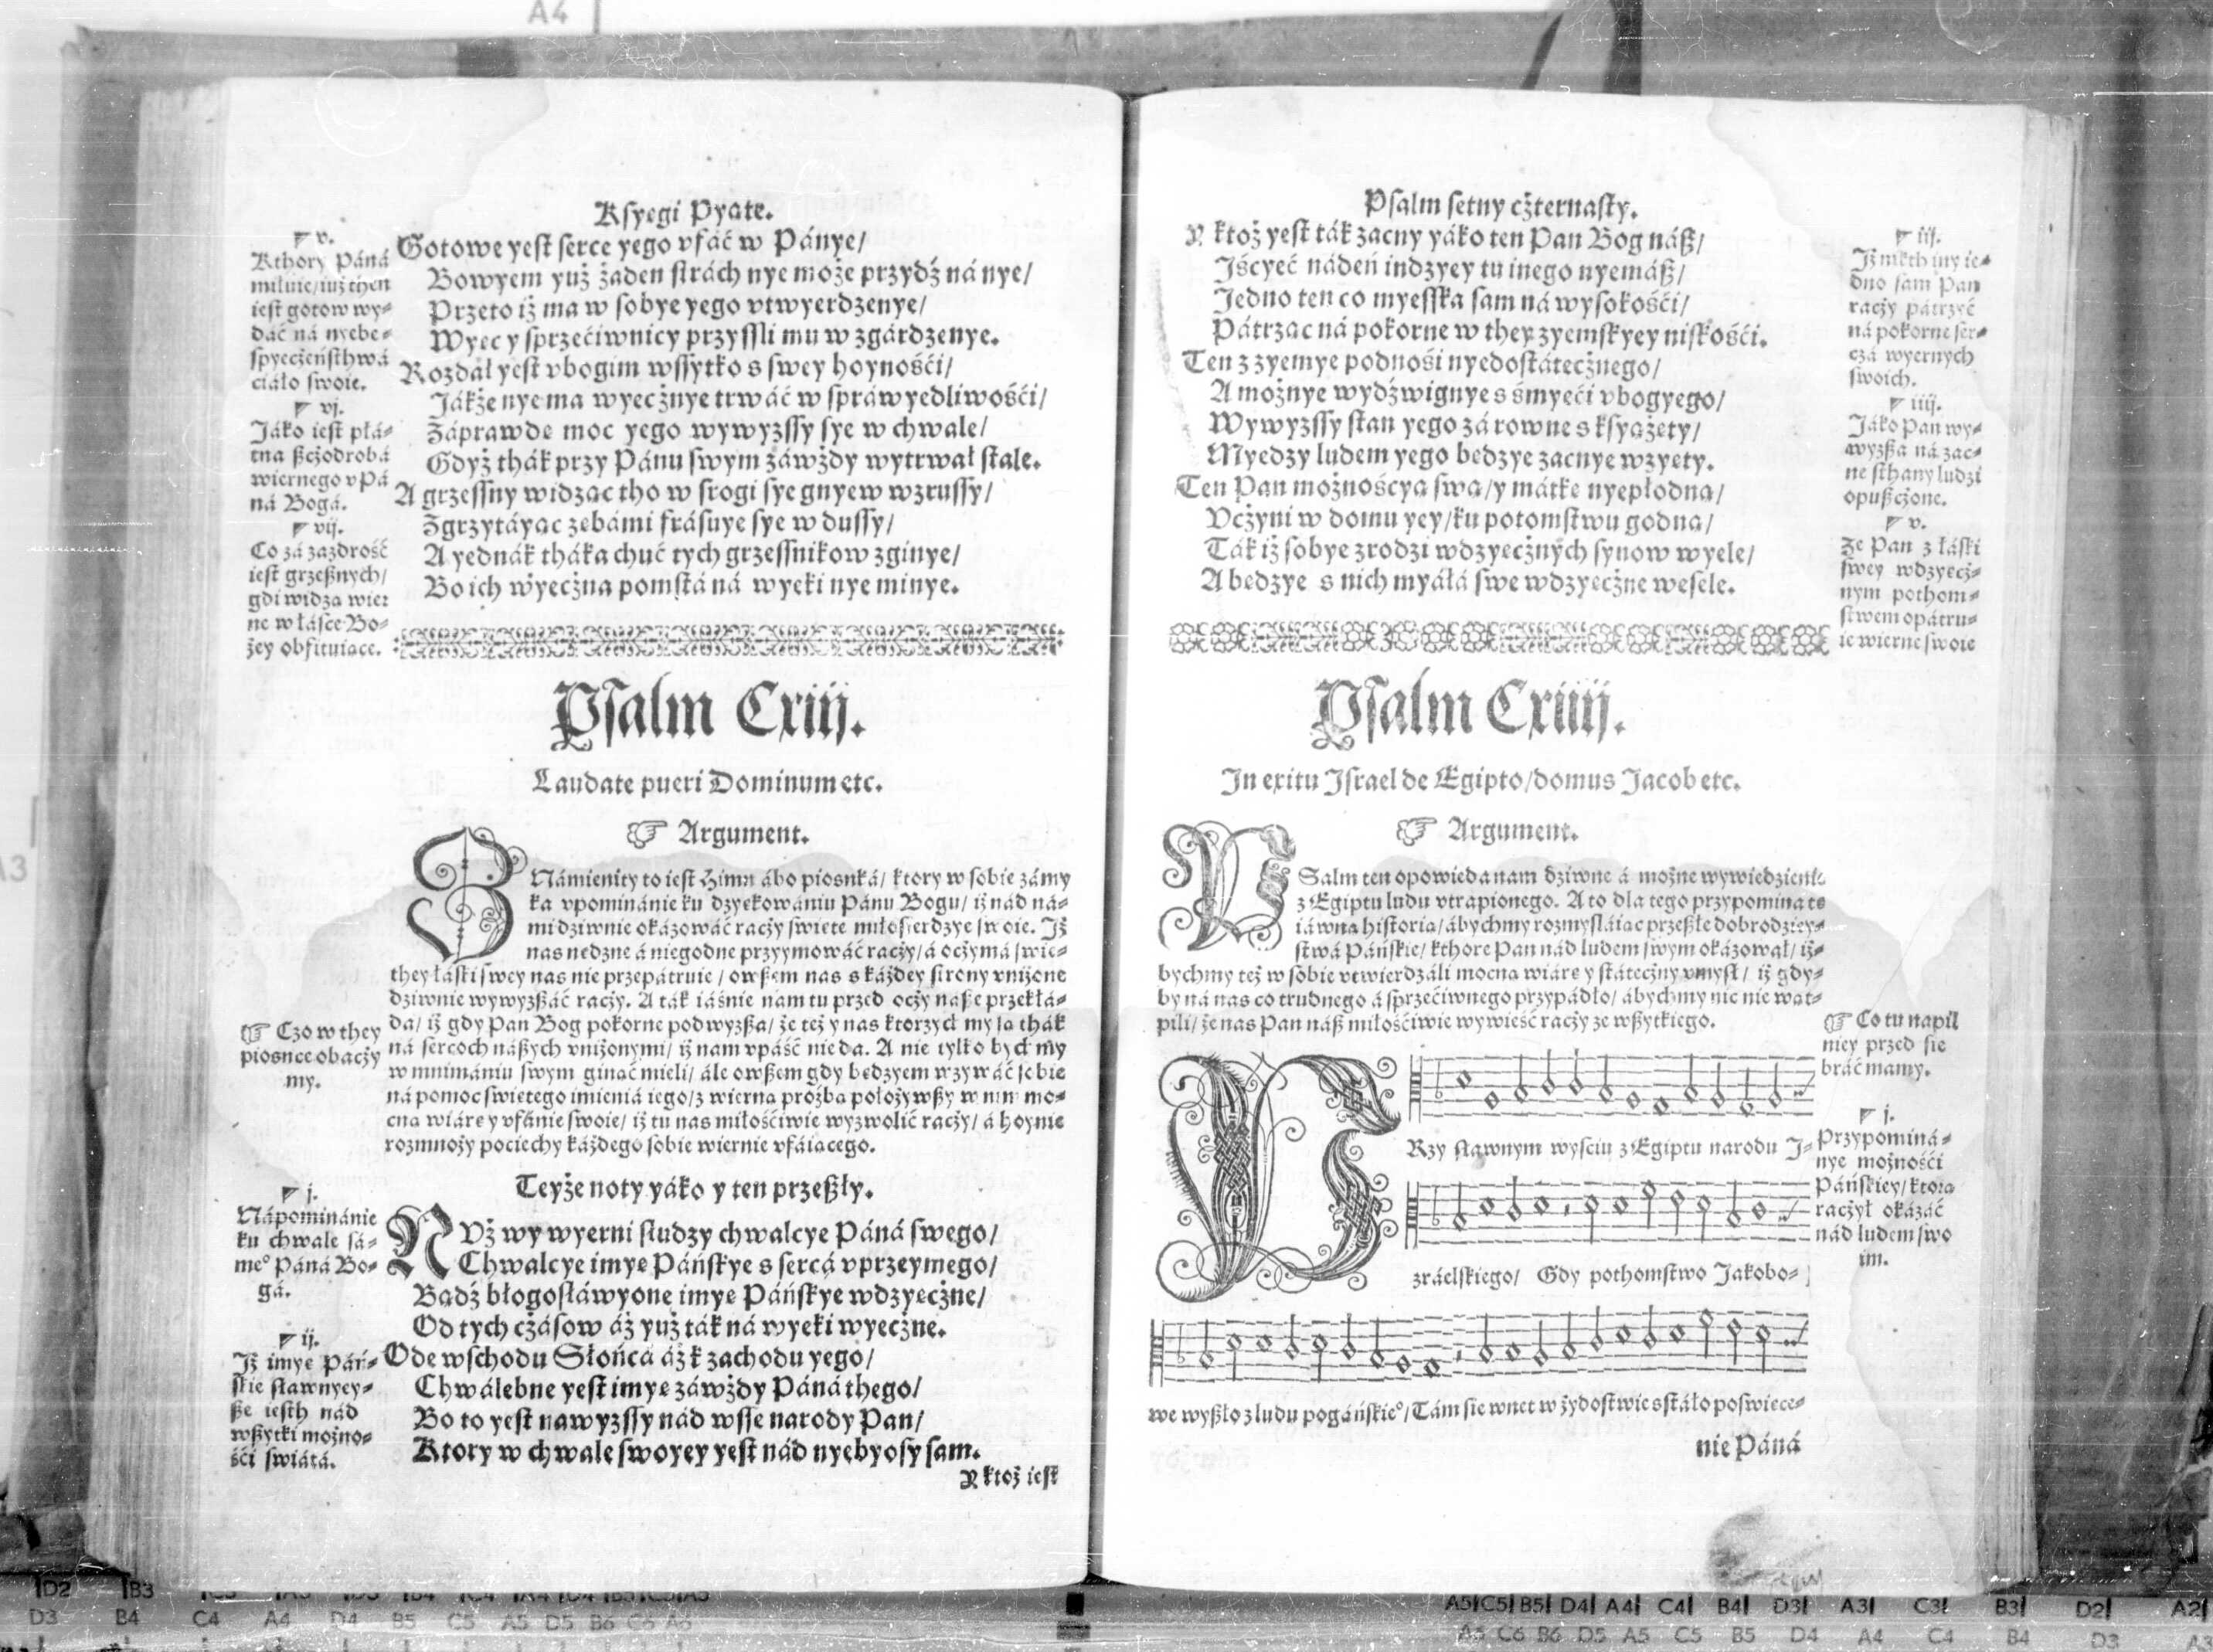 Ksyęgi Pyąte.
v.
Kthory Páná
miłuie/iuż then
iest gotow wy-
dáć ná nyebe-
spyecżeństhwá
ciáło swoie.
vj.
Jáko iest płá-
tna ßcżodrobá
wiernego v Pá
ná Bogá.
vij.
Co zá zazdrość
iest grzeßnych/
gdi widzą wier
ne w łásce Bo-
żey obfituiące.
Gotowe yest serce yego vfáć w Pánye/
Bowyem yuż żaden strách nye może przydź ná nye/
Przeto iż ma w sobye yego vtwyerdzenye/
Wyęc y sprzećiwnicy przyssli mu w zgárdzenye.
Rozdał yest vbogim wssytko s swey hoynośći/
Jákże nye ma wyecżnye trwáć w spráwyedliwośći/
Záprawdę moc yego wywyzssy sye w chwale/
Gdyż thák przy Pánu swym záwżdy wytrwał stale.
A grzessny widząc tho w srogi sye gnyew wzrussy/
Zgrzytáyąc zębámi frásuye sye w dussy/
A yednák tháka chuć tych grzessnikow zginye/
Bo ich wyecżna pomstá ná wyeki nye minye.
Psalm Cxiij.
Laudate pueri Dominum etc.
☞ Argument.
ZNámienity to iest Himn ábo piosnká/ ktory w sobie zámy
ka vpominánie ku dzyękowániu Pánu Bogu/ iż nád ná-
mi dziwnie okázowáć racży swięte miłosierdzye swoie. Iż
nas nędzne á niegodne przyymowáć racży/ á ocżymá swię-
they łáski swey nas nie przepátruie/ owßem nas s káżdey strony vniżone
dziwnie wywyzßáć racży. A ták iáśnie nam tu przed ocży náße przekłá-
da/ iż gdy Pan Bog pokorne podwyzßa/ że też y nas ktorzych my są thák
ná sercoch náßych vniżonymi/ iż nam vpáść nie da. A nie tylko bychmy
w mnimániu swym ginąć mieli/ ále owßem gdy będzyem wzywáć sobie
ná pomoc swiętego imieniá iego/ z wierną prośbą położywßy w nim mo-
cną wiárę y vfánie swoie/ iż tu nas miłośćiwie wyzwolić racży/ á hoynie
rozmnoży pociechy káżdego sobie wiernie vfáiącego.
☞ Czo w they
piosnce obacży
my.
Teyże noty yáko y ten przeßły.
j.
Nápominánie
ku chwale sá-
me° Páná Bo-
gá.
ij.
Iż imye Páń-
skie sławnyey-
ße iesth nád
wßytki możno-
śći swiátá.
NVż wy wyerni słudzy chwalcye Páná swego/
Chwalcye imye Páńskye s sercá vprzeymego/
Bądź błogosłáwyone imye Páńskye wdzyecżne/
Od tych cżásow áż yuż ták ná wyeki wyecżne.
Ode wschodu Słońcá áż k zachodu yego/
Chwálebne yest imye záwżdy Páná thego/
Bo to yest nawyzssy nád wsse narody Pan/
Ktory w chwale swoyey yest nád nyebyosy sam.
Y ktoż iest
Psalm setny cżternasty.
Y ktoż yest ták zacny yáko ten Pan Bog náß/
Iśćyeć nádeń indzyey tu inego nyemáß/
Jedno ten co myesska sam ná wysokośći/
Pátrząc ná pokorne w they zyemskyey niskośći.
Ten z zyemye podnośi nyedostátecżnego/
A możnye wydźwignye s śmyeći vbogyego/
Wywyzssy stan yego zá rowne s ksyążęty/
Myedzy ludem yego będzye zacnye wzyęty.
Ten Pan możnoścyą swą/ y mátkę nyepłodną/
Vcżyni w domu yey/ ku potomstwu godną/
Ták iż sobye zrodzi wdzyecżnych synow wyele/
A będzye s nich myáłá swe wdzyecżne wesele.
iij.
Iż niekth iny ie-
dno sam Pan
racży pátrzyć
ná pokorne ser-
czá wyernych
swoich.
iiij.
Jáko Pan wy-
wyzßa ná zac-
ne sthany ludzi
opußcżone.
v.
Że Pan z łáski
swey wdzyecż-
nym pothom-
stwem opátru-
ie wierne swoie
Psalm Cxiiij.
In exitu Israel de Egipto/ domus Jacob etc.
☞ Argument.
PSalm ten opowieda nam dziwne á możne wywiedzienie
z Egiptu ludu vtrapionego. A to dla tego przypomina tę
iáwną historią/ ábychmy rozmysláiąc przeßłe dobrodziey-
stwá Páńskie/ kthore Pan nád ludem swym okázował/ iż-
bychmy też w sobie vtwierdzáli mocną wiárę y státecżny vmysł/ iż gdy-
by ná nas co trudnego á sprzećiwnego przypádło/ ábychmy nic nie wąt-
pili/ że nas Pan náß miłośćiwie wywieść racży ze wßytkiego.
☞ Co tu napil
niey przed się
bráć mamy.
j.
Przypominá-
nye możnośći
Páńskiey/ ktorą
racżył okázáć
nád ludem swo
im.
PRzy sławnym wyściu z Egiptu narodu I-
zráelskiego/ Gdy pothomstwo Jakobo-
we wyßło z ludu pogáńskie°/ Tám się wnet w żydostwie sstáło poswięce-
nie Páná